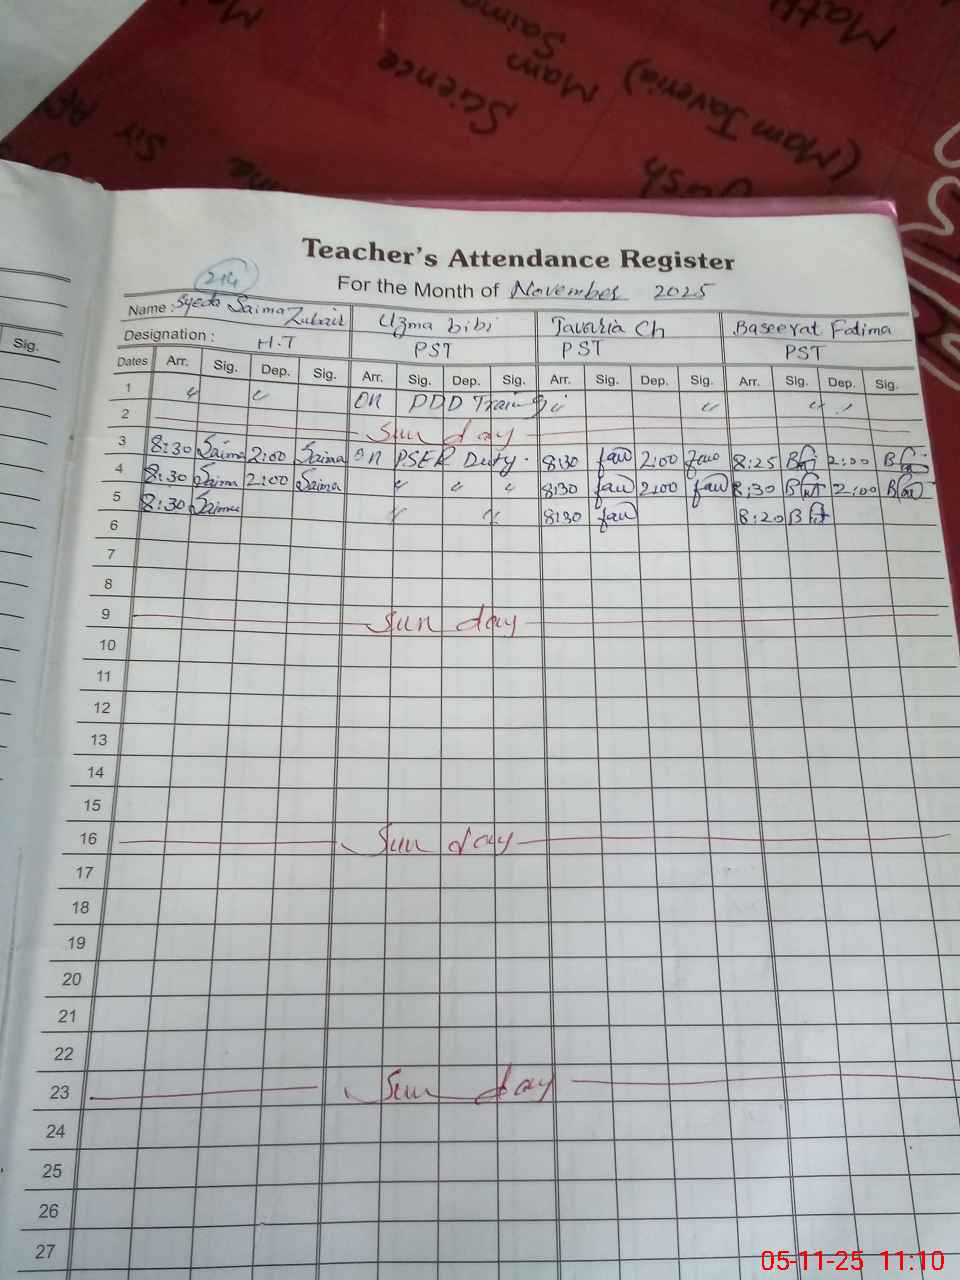 Math
Mam
Saima
Science
(Mam Javeria)
Sir
Teacher's Attendance Register
214
For the Month of November 2025
Name : Syeda Saima Zubair Uzma bibi Javaria Ch Baseerat Fatima
Designation : H.T PST PST PST
Sig.
Dates Arr. Sig. Dep. Sig. Arr. Sig. Dep. Sig. Arr. Sig. Dep. Sig. Arr. Sig. Dep. Sig.
1 " " On PDD Training " " " "
2 Sun day
3 8:30 Saima 2:00 Saima On PSER Duty. 8:30 2:00 8:25 2:00
4 8:30 Saima 2:00 Saima " " " 8:30 2:00 8:30 2:00
5 8:30 Saima " " 8:30 8:20
6
7
8
9 Sun day
10
11
12
13
14
15
16 Sun day
17
18
19
20
21
22
23 Sun day
24
25
26
27
05-11-25 11:10